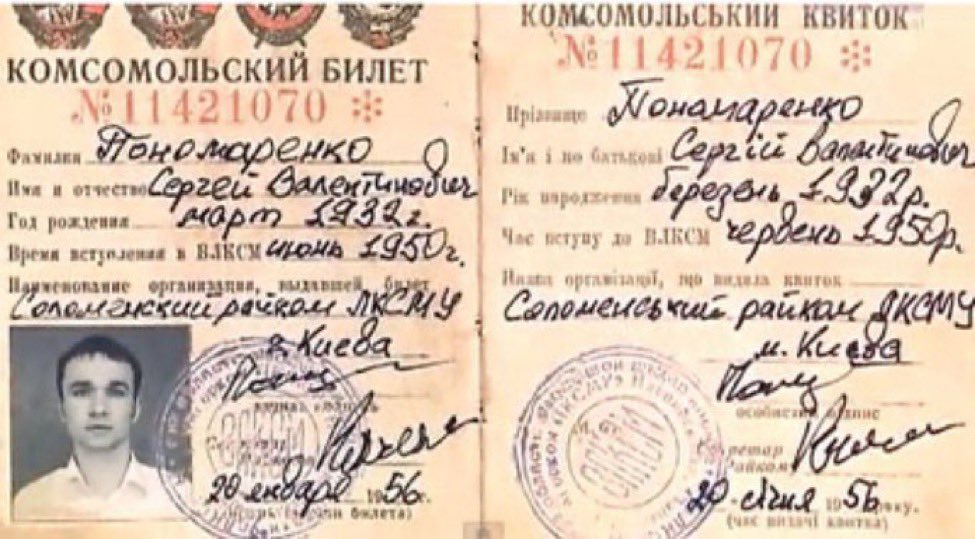 КОМСОМОЛЬСКИЙ БИЛЕТ
№11421070 ✻
Фамилия Пономаренко
Имя и отчество Сергей Валентинович
Год рождения март 1932 г.
Время вступления в ВЛКСМ июнь 1950 г.
Наименование организации, выдавшей билет
Соломенский райком ЛКСМУ
г. Киева
20 января 1956 г.
КОМСОМОЛЬСЬКИЙ КВИТОК
№11421070 ✻
Прізвище Пономаренко
Ім'я і по батькові Сергій Валентинович
Рік народження березень 1932 р.
Час вступу до ВЛКСМ червень 1950 р.
Назва організації, що видала квиток
Соломенський райком ЛКСМУ
м. Києва
особистий підпис
Секретар
Райкому
20 січня 1956 року.
(час видачі квитка)